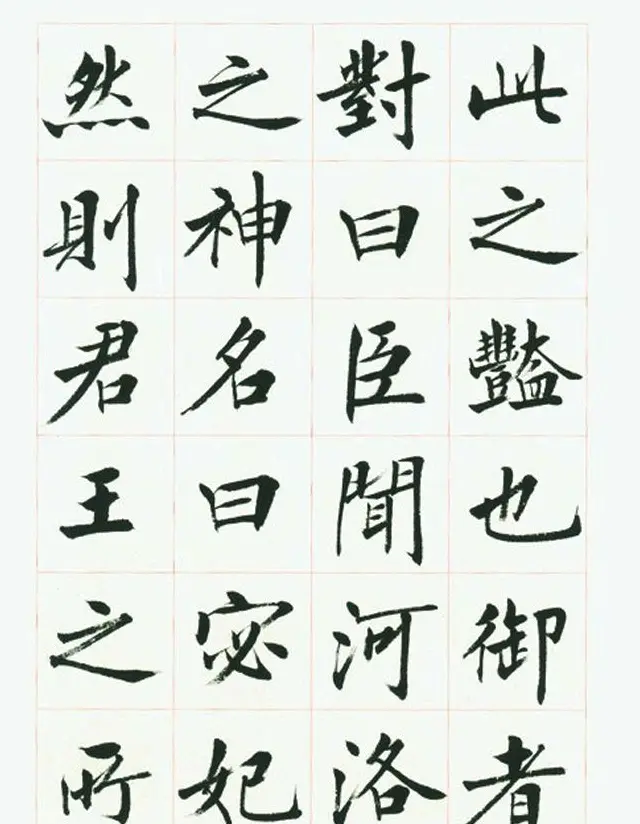 此之豔也御者
對曰臣聞河洛
之神名曰宓妃
然則君王之所